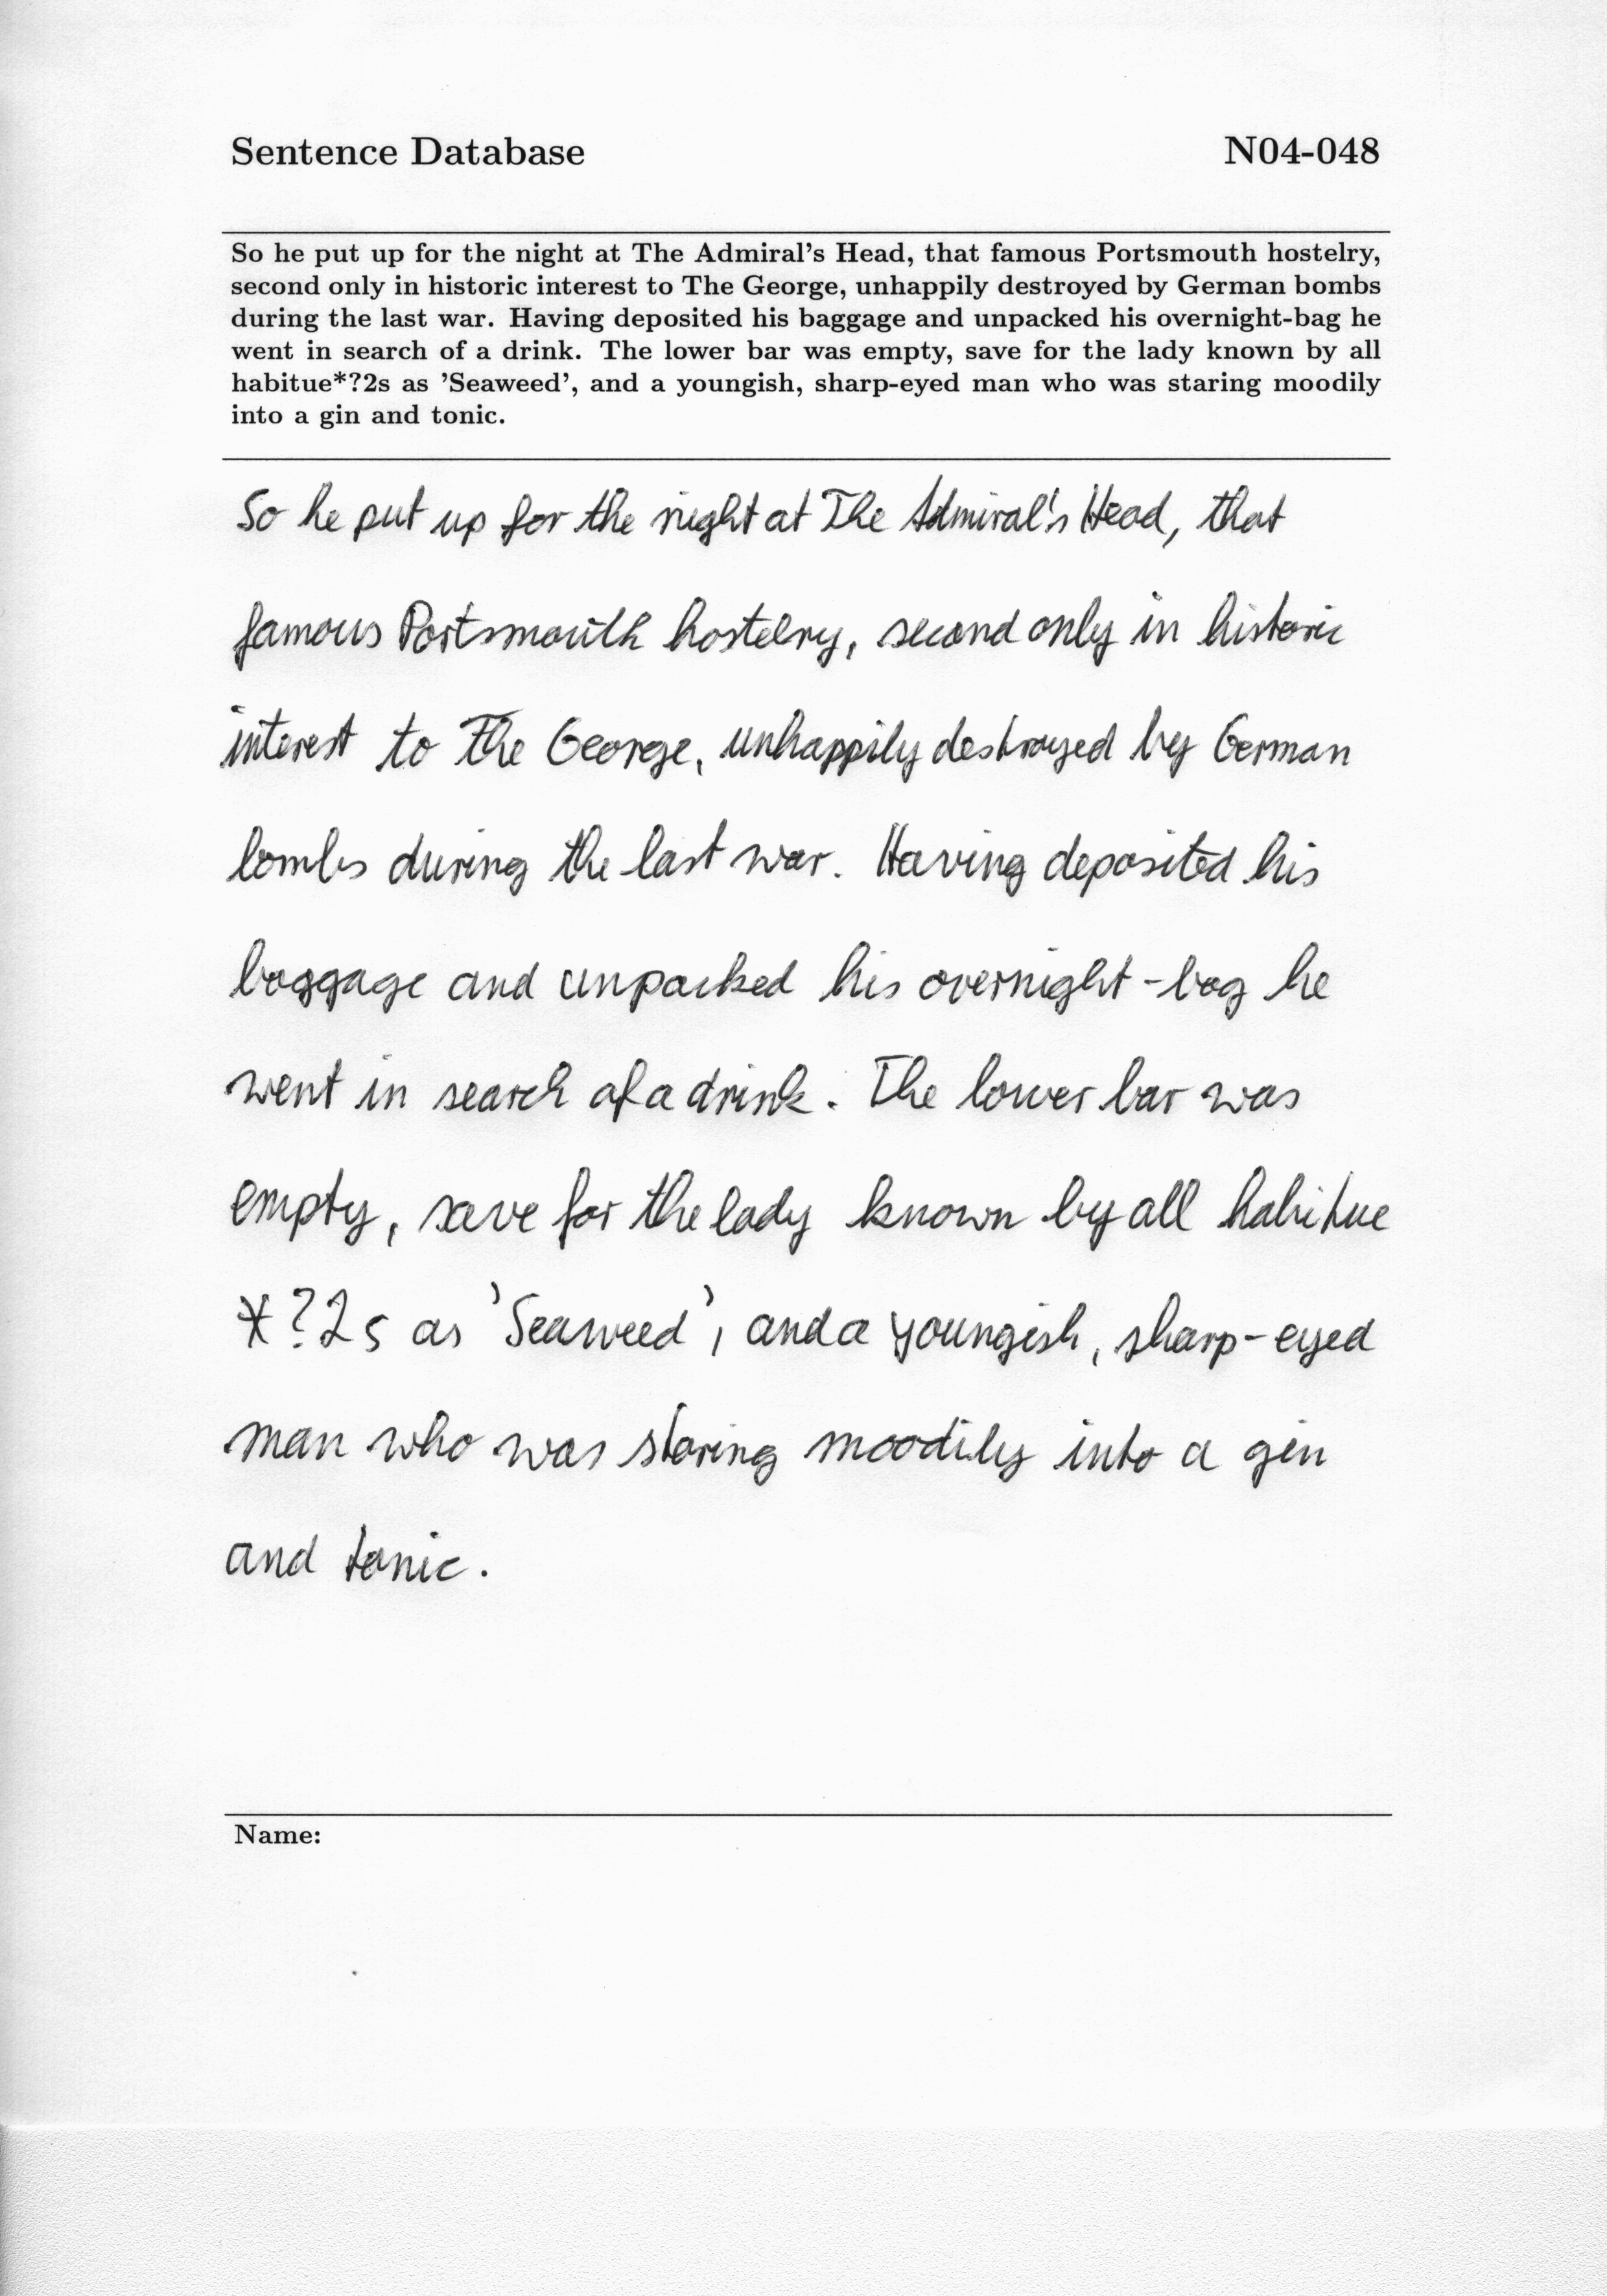 Sentence Database N04-048
So he put up for the night at The Admiral's Head, that famous Portsmouth hostelry,
second only in historic interest to The George, unhappily destroyed by German bombs
during the last war. Having deposited his baggage and unpacked his overnight-bag he
went in search of a drink. The lower bar was empty, save for the lady known by all
habitue*?2s as 'Seaweed', and a youngish, sharp-eyed man who was staring moodily
into a gin and tonic.
So he put up for the night at The Admiral's Head, that
famous Portsmouth hostelry, second only in historic
interest to The George, unhappily destroyed by German
bombs during the last war. Having deposited his
baggage and unpacked his overnight-bag he
went in search of a drink. The lower bar was
empty, save for the lady known by all habitue
*?2s as 'Seaweed', and a youngish, sharp-eyed
man who was staring moodily into a gin
and tonic.
Name: